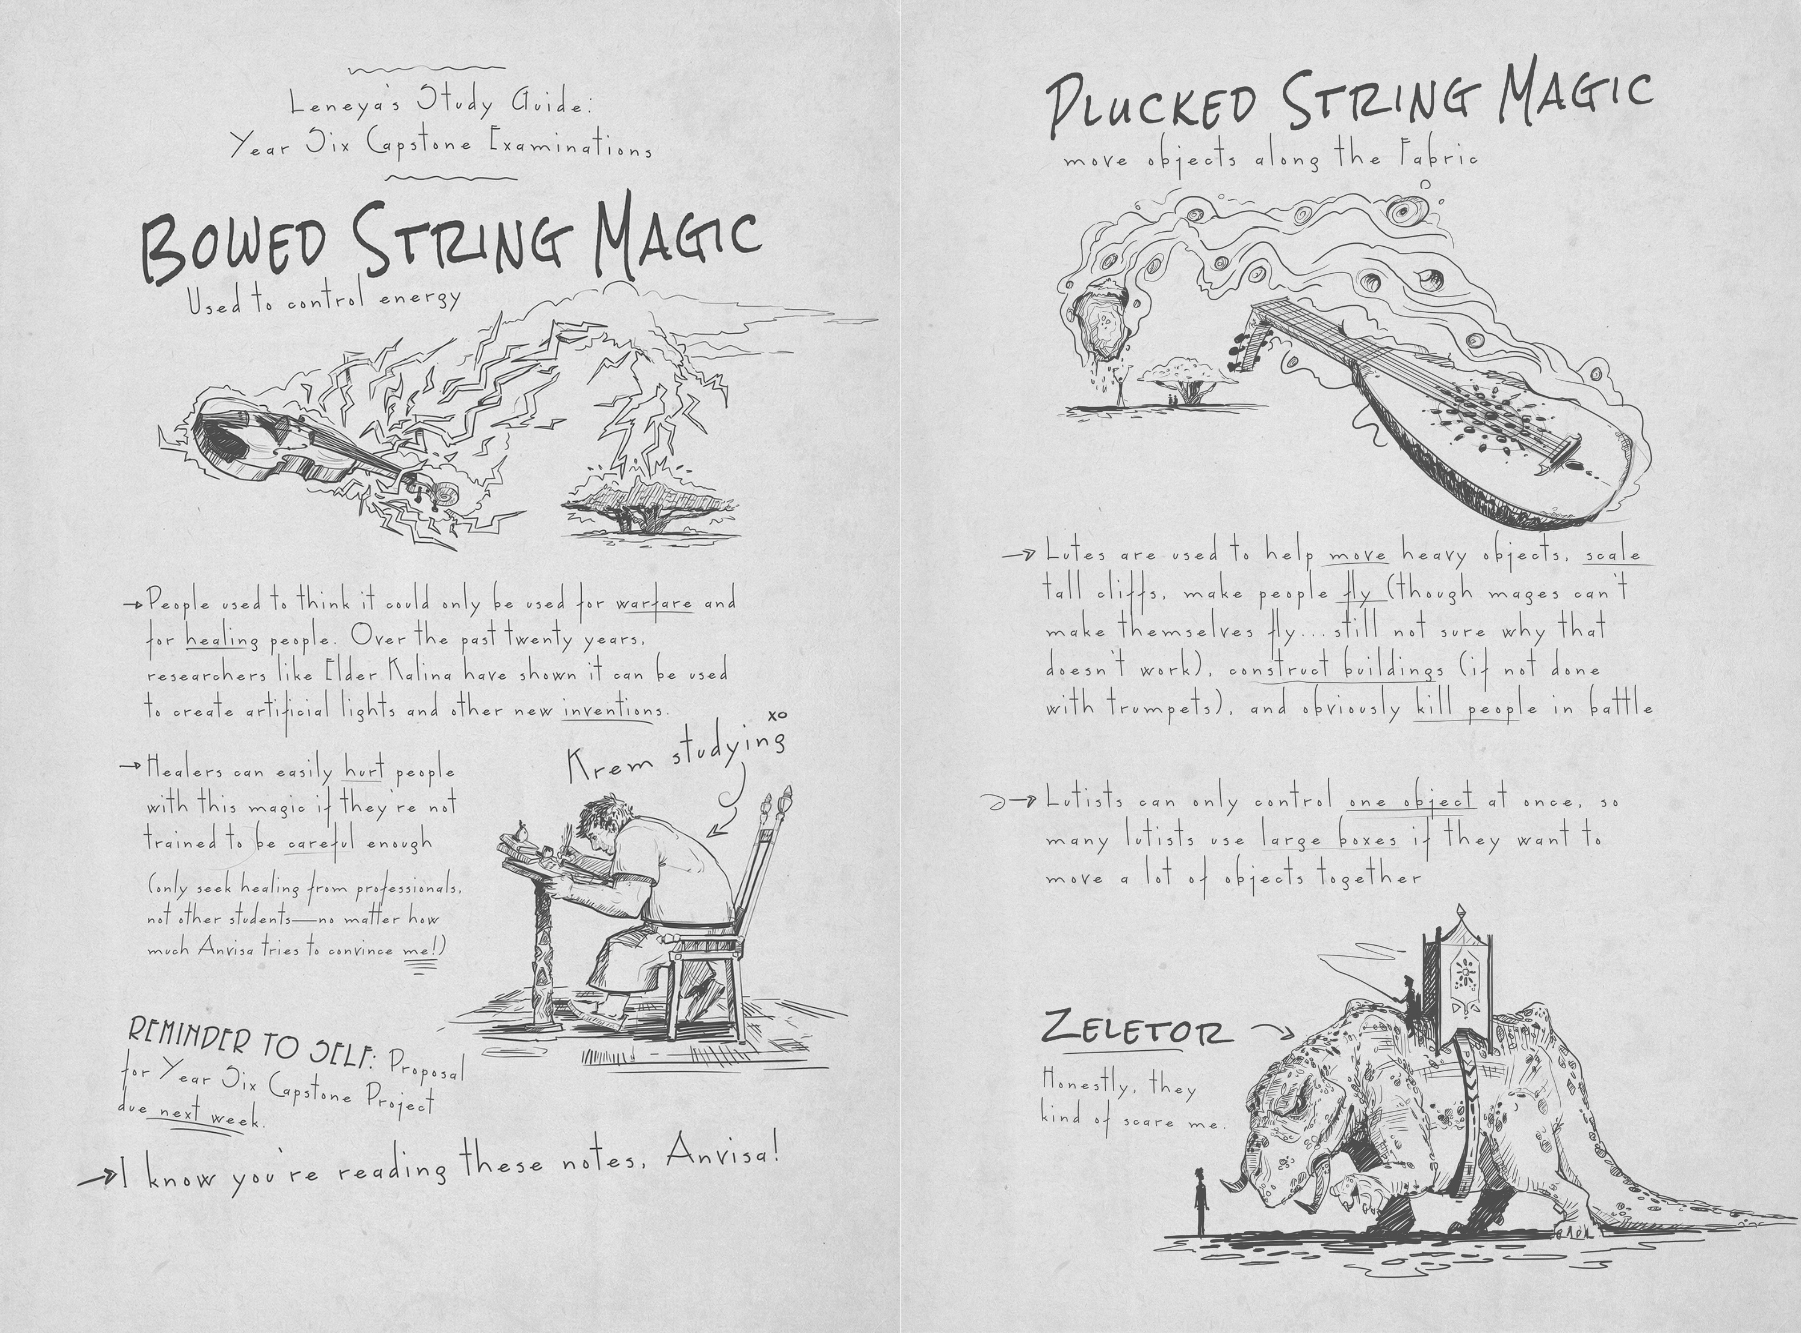 Leneya's Study Guide:
Year Six Capstone Examinations
BOWED STRING MAGIC
Used to control energy
→People used to think it could only be used for warfare and
for healing people. Over the past twenty years,
researchers like Elder Kalina have shown it can be used
to create artificial lights and other new inventions.
→Healers can easily hurt people
with this magic if they're not
trained to be careful enough
(only seek healing from professionals,
not other students—no matter how
much Anvisa tries to convince me!)
xo
Krem studying
REMINDER TO SELF: Proposal
for Year Six Capstone Project
due next week.
→I know you're reading these notes, Anvisa!
PLUCKED STRING MAGIC
move objects along the Fabric
→Lutes are used to help move heavy objects, scale
tall cliffs, make people fly (though mages can't
make themselves fly...still not sure why that
doesn't work), construct buildings (if not done
with trumpets), and obviously kill people in battle
→Lutists can only control one object at once, so
many lutists use large boxes if they want to
move a lot of objects together
ZELETOR
Honestly, they
kind of scare me.